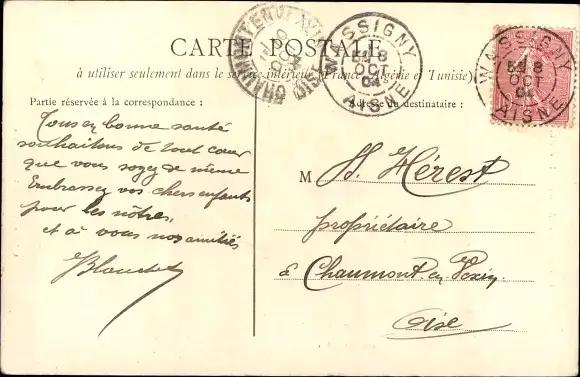 CARTE POSTALE
à utiliser seulement dans le service intérieur (France, Algérie et Tunisie)
Partie réservée à la correspondance :
Adresse du destinataire :
CHAUMONT-EN-VEXIN
OISE
WASSIGNY
8
OCT
04
AISNE
WASSIGNY
8
OCT
04
AISNE
Tous en bonne santé
souhaitons de tout cœur
que vous soyez de même
Embrassez vos chers enfants
pour les nôtres,
et à vous nos amitiés
Blanchet
M H. Hérest
propriétaire
à Chaumont en Vexin
Oise